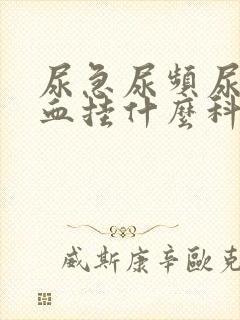 尿急尿頻尿
血挂什麼科
威斯康辛歐克